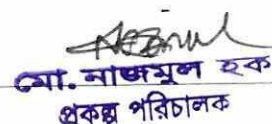 মো. নাজমুল হক
প্রকল্প পরিচালক